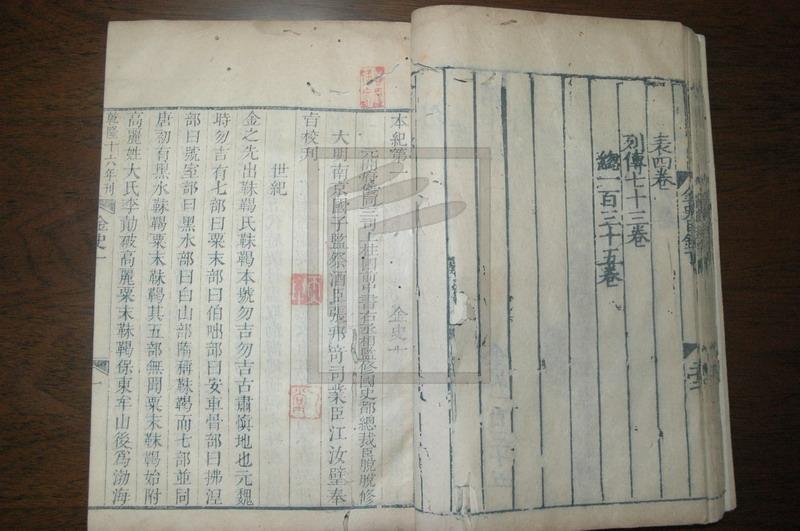 表四卷
列傳七十三卷
總一百三十五卷
金史目錄下
本紀第一
金史一
元開府儀同三司上柱國前中書右丞相監修國史都總裁臣脫脫修
大明南京國子監祭酒臣張邦奇司業臣江汝璧奉
旨校刊
世紀
金之先出靺鞨氏靺鞨本號勿吉勿吉古肅愼地也元魏
時勿吉有七部曰粟末部曰伯咄部曰安車骨部曰拂涅
部曰號室部曰黑水部曰白山部隋稱靺鞨而七部並同
唐初有黑水靺鞨粟末靺鞨其五部無聞粟末靺鞨始附
高麗姓大氏李勣破高麗粟末靺鞨保東牟山後爲渤海
乾隆十六年刊
金史一
一